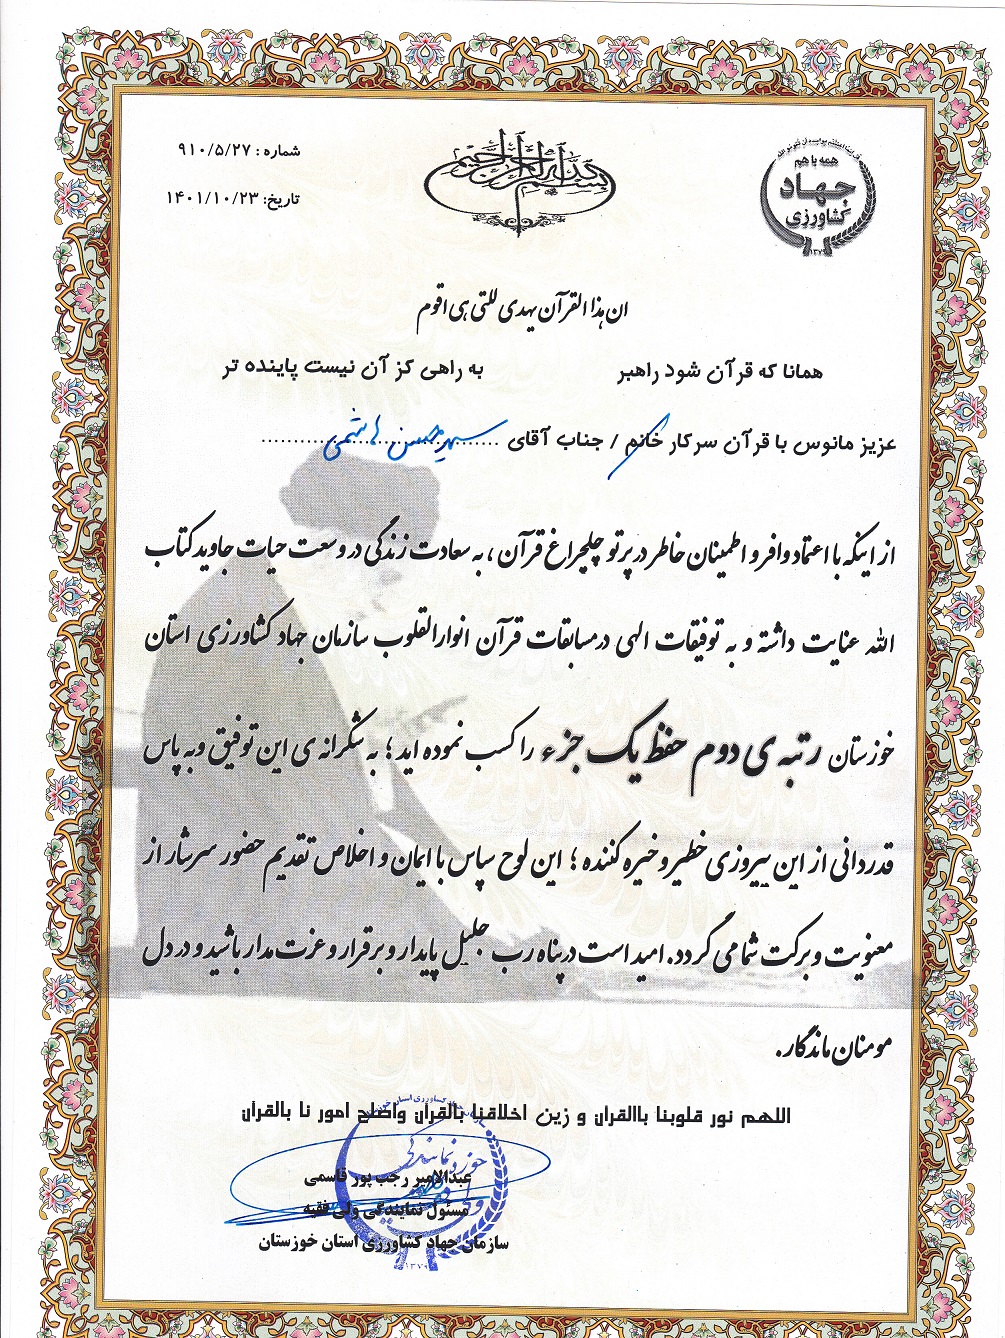 بسم الله الرحمن الرحیم
همه با هم
جهاد
کشاورزی
۱۳۷۹
شماره : ۹۱۰/۵/۲۷
تاریخ: ۱۴۰۱/۱۰/۲۳
ان هذا القرآن یهدی للتی هی اقوم
همانا که قرآن شود راهبر به راهی کز آن نیست پاینده تر
عزیز مانوس با قرآن سرکار خانم / جناب آقای سیدمحسن هاشمی
از اینکه با اعتماد وافر و اطمینان خاطر در پرتو چلچراغ قرآن ، به سعادت زندگی در وسعت حیات جاوید کتاب
الله عنایت داشته و به توفیقات الهی درمسابقات قرآن انوارالقلوب سازمان جهاد کشاورزی استان
خوزستان رتبه ی دوم حفظ یک جزء را کسب نموده اید ؛ به شکرانه ی این توفیق وبه پاس
قدردانی از این پیروزی خطیر و خیره کننده ؛ این لوح سپاس با ایمان و اخلاص تقدیم حضور سرشار از
معنویت و برکت شما می گردد. امید است در پناه رب جلیل پایدار و برقرار و عزت مدار باشید و در دل
مومنان ماندگار.
اللهم نور قلوبنا باالقران و زین اخلاقنا بالقرآن واصلح امور نا بالقرآن
حوزه نمایندگی
عبدالامیر رجب پور قاسمی
مسئول نمایندگی ولی فقیه
سازمان جهاد کشاورزی استان خوزستان
۱۳۷۹